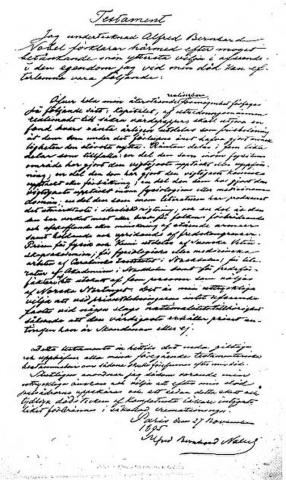 Testament
Jag undertecknad Alfred Bernhard
Nobel förklarar härmed efter moget
betänkande min yttersta vilja i afseende
å den egendom jag vid min död kan ef-
terlemna vara följande:
Öfver hela min återstående förmögenhet förfogas
på följande sätt: kapitalet, af utredningsmännen
realiserade till säkra värdepapper, skall utgöra en
fond hvars ränta årligen utdelas som prisbelöning
åt dem som under det förlupna året hafva gjort
den största nytta. Räntan delas i fem lika
delar som tillfalla: en del den som inom fysikens
område har gjort den vigtigaste upptäckt eller uppfin-
ning; en del den som har gjort den vigtigaste kemiska
upptäckt eller förbättring; en del den som har gjort den
vigtigaste upptäckt inom fysiologiens eller medicinens
domän; en del den som inom litteraturen har producerat
det i idealisk rigtning; och en del åt den
som har verkat mest eller bäst för folkens förbrödrande
och afskaffande eller minskning af stående armeer
samt bildande och spridande af fredskongresser.
Prisen för fysik och kemi utdelas af Svenska
för fysiologiska eller medicinska
arbeten af Carolinska Institutet i Stockholm; för lit-
teratur af Akademien i Stockholm samt för fredsför-
fäktare af ett utskott af fem personer som väljas
af Norska Stortinget. Det är min uttryckliga
vilja att vid prisutdelningarne intet afseende
fästes vid någon slags nationalitetstillhörighet
sålunda att den värdigaste erhåller priset an-
tingen han är Skandinav eller ej.
Detta testamente är hittills det enda giltiga
och upphäfver alla mina föregående testamentariska
bestämmelser om sådana skulle förefinnas efter min död.
Slutligen anordnar jag såsom varande min
uttryckliga önskan och vilja att efter min död
pulsådrorna uppskäras och att sedan detta skett och
tydliga dödstecken af kompetenta läkare intygats
liket förbrännes i crematorium.
Paris den 27 November
1895
Alfred Bernhard Nobel